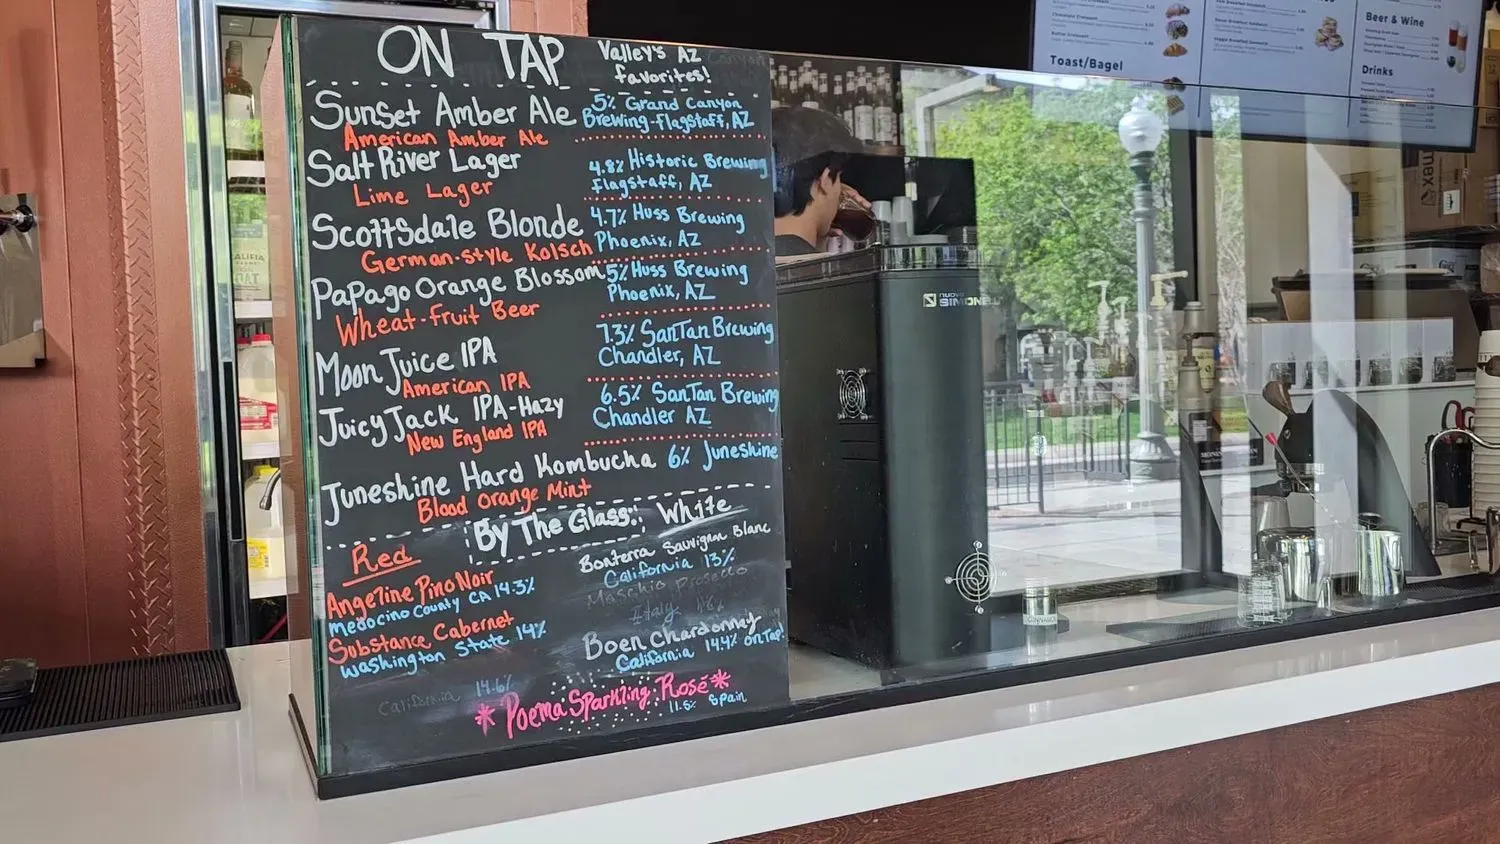 ON TAP
Valley's AZ
favorites!
Sunset Amber Ale
5% Grand Canyon
Brewing-Flagstaff, AZ
American Amber Ale
Salt River Lager
4.8% Historic Brewing
Flagstaff, AZ
Lime Lager
Scottsdale Blonde
4.7% Huss Brewing
Phoenix, AZ
German-style Kolsch
Papago Orange Blossom
5% Huss Brewing
Phoenix, AZ
Wheat-fruit Beer
Moon Juice IPA
7.3% SanTan Brewing
Chandler, AZ
American IPA
Juicy Jack IPA-Hazy
6.5% SanTan Brewing
Chandler AZ
New England IPA
Juneshine Hard Kombucha 6% Juneshine
Blood Orange Mint
By The Glass:
Red
Angeline Pino Noir
Medocino County CA 14.3%
Substance Cabernet
Washington State 14%
California 14.6%
White
Bonterra Sauvignon Blanc
California 13%
Maschio Prosecco
Italy 11%
Boen Chardonnay
California 14.4% on Tap!
*Poema Sparkling Rosé*
11.5% Spain
Toast/Bagel
Beer & Wine
Drinks